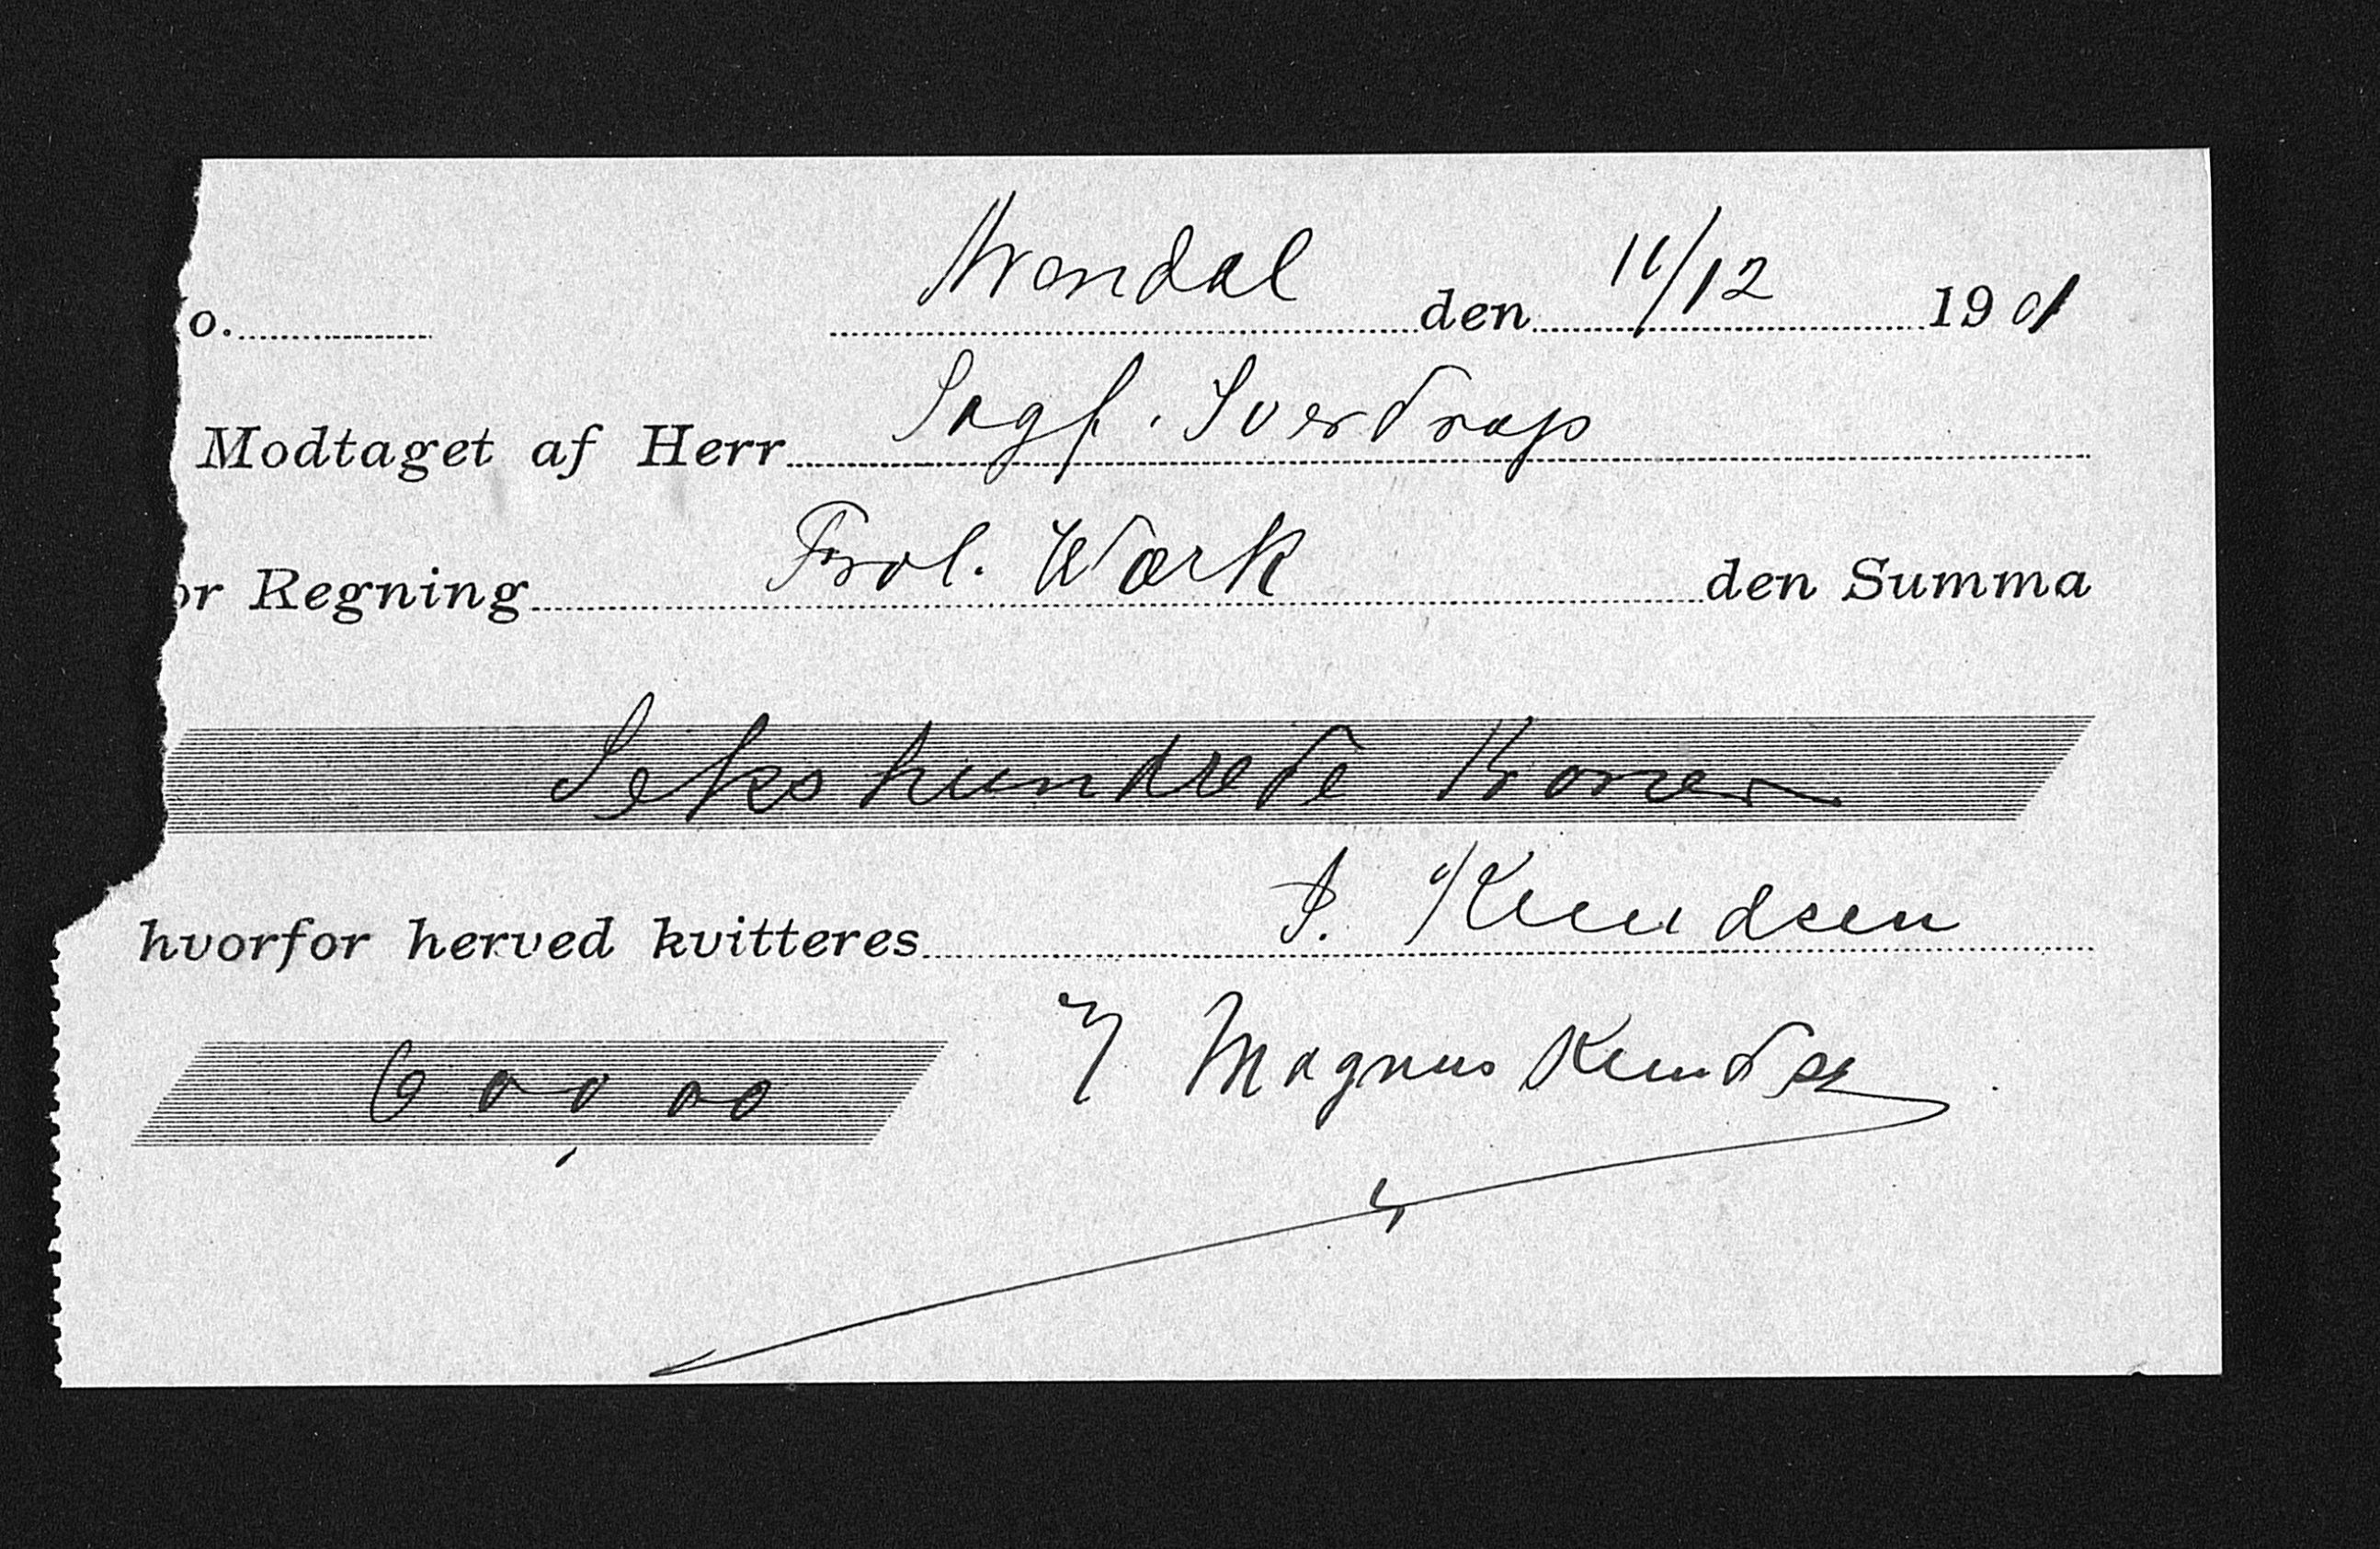 o. Arendal den 11/12 1901
Modtaget af Herr Sagf. Sverdrup
or Regning Frol. Værk den Summa
Sekshundrede Kroner
hvorfor herved kvitteres J. Knudsen
600,00 Magnus Knudsen